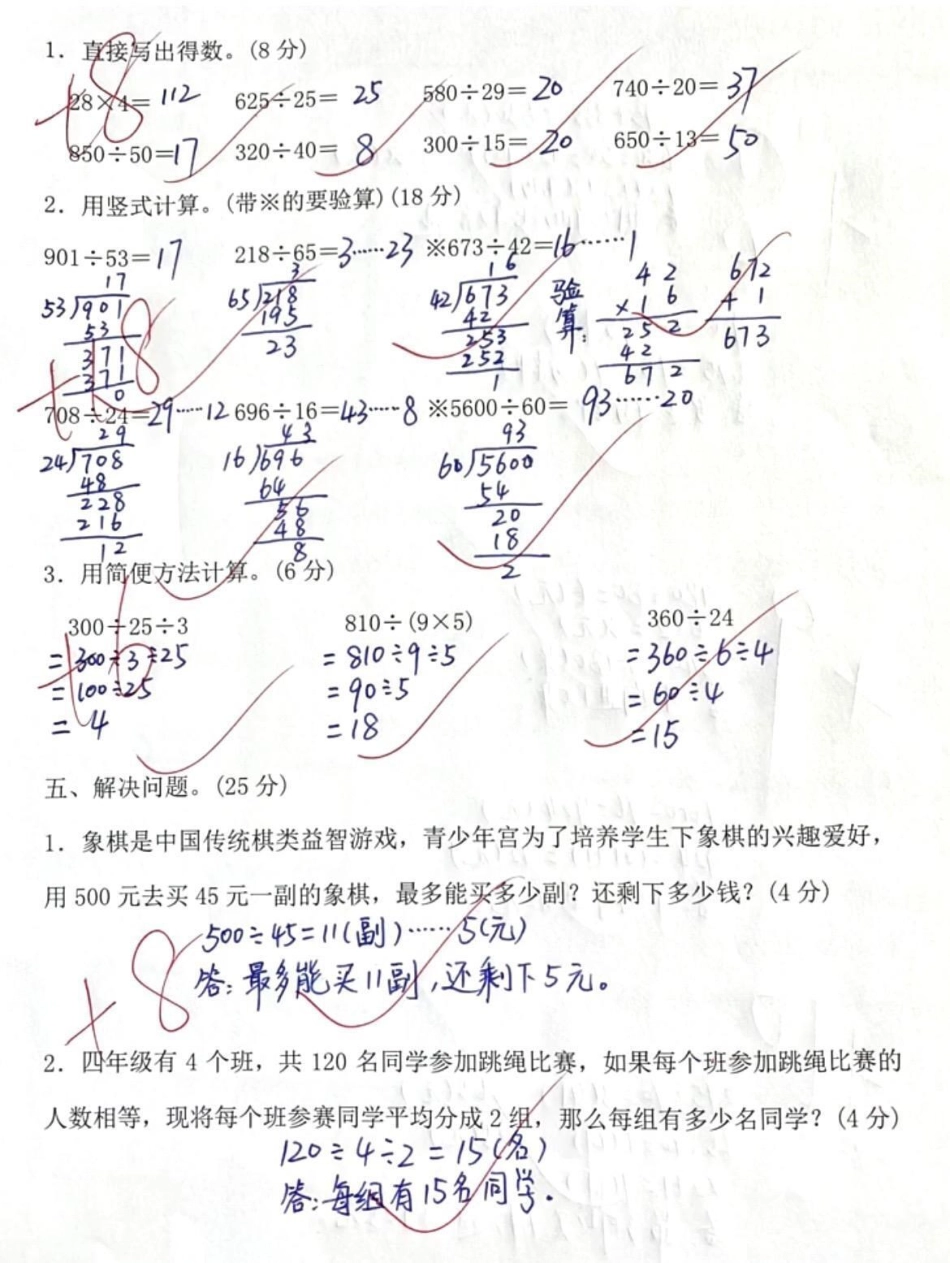 1. 直接写出得数。(8 分)
+8
28×4= 112 625÷25= 25 580÷29= 20 740÷20= 37
850÷50=17 320÷40= 8 300÷15= 20 650÷13= 50
2. 用竖式计算。(带※的要验算)(18 分)
901÷53=17 218÷65=3……23 ※673÷42=16……1
17 3 16 42 672
53)901 65)218 42)673 验算: ×16 + 1
53 195 42 252 673
371 23 253 42
371 252 672
0 1
+18
708÷24=29……12 696÷16=43……8 ※5600÷60= 93……20
29 43 93
24)708 16)696 60)5600
48 64 54
228 56 20
216 48 18
12 8 2
3. 用简便方法计算。(6 分)
+6
300÷25÷3 810÷(9×5) 360÷24
=300÷3÷25 =810÷9÷5 =360÷6÷4
=100÷25 =90÷5 =60÷4
=4 =18 =15
五、解决问题。(25 分)
1. 象棋是中国传统棋类益智游戏，青少年宫为了培养学生下象棋的兴趣爱好，
用 500 元去买 45 元一副的象棋，最多能买多少副？还剩下多少钱？(4 分)
+8
500÷45=11(副)……5(元)
答:最多能买11副,还剩下5元。
2. 四年级有 4 个班，共 120 名同学参加跳绳比赛，如果每个班参加跳绳比赛的
人数相等，现将每个班参赛同学平均分成 2 组，那么每组有多少名同学？(4 分)
120÷4÷2=15(名)
答:每组有15名同学.